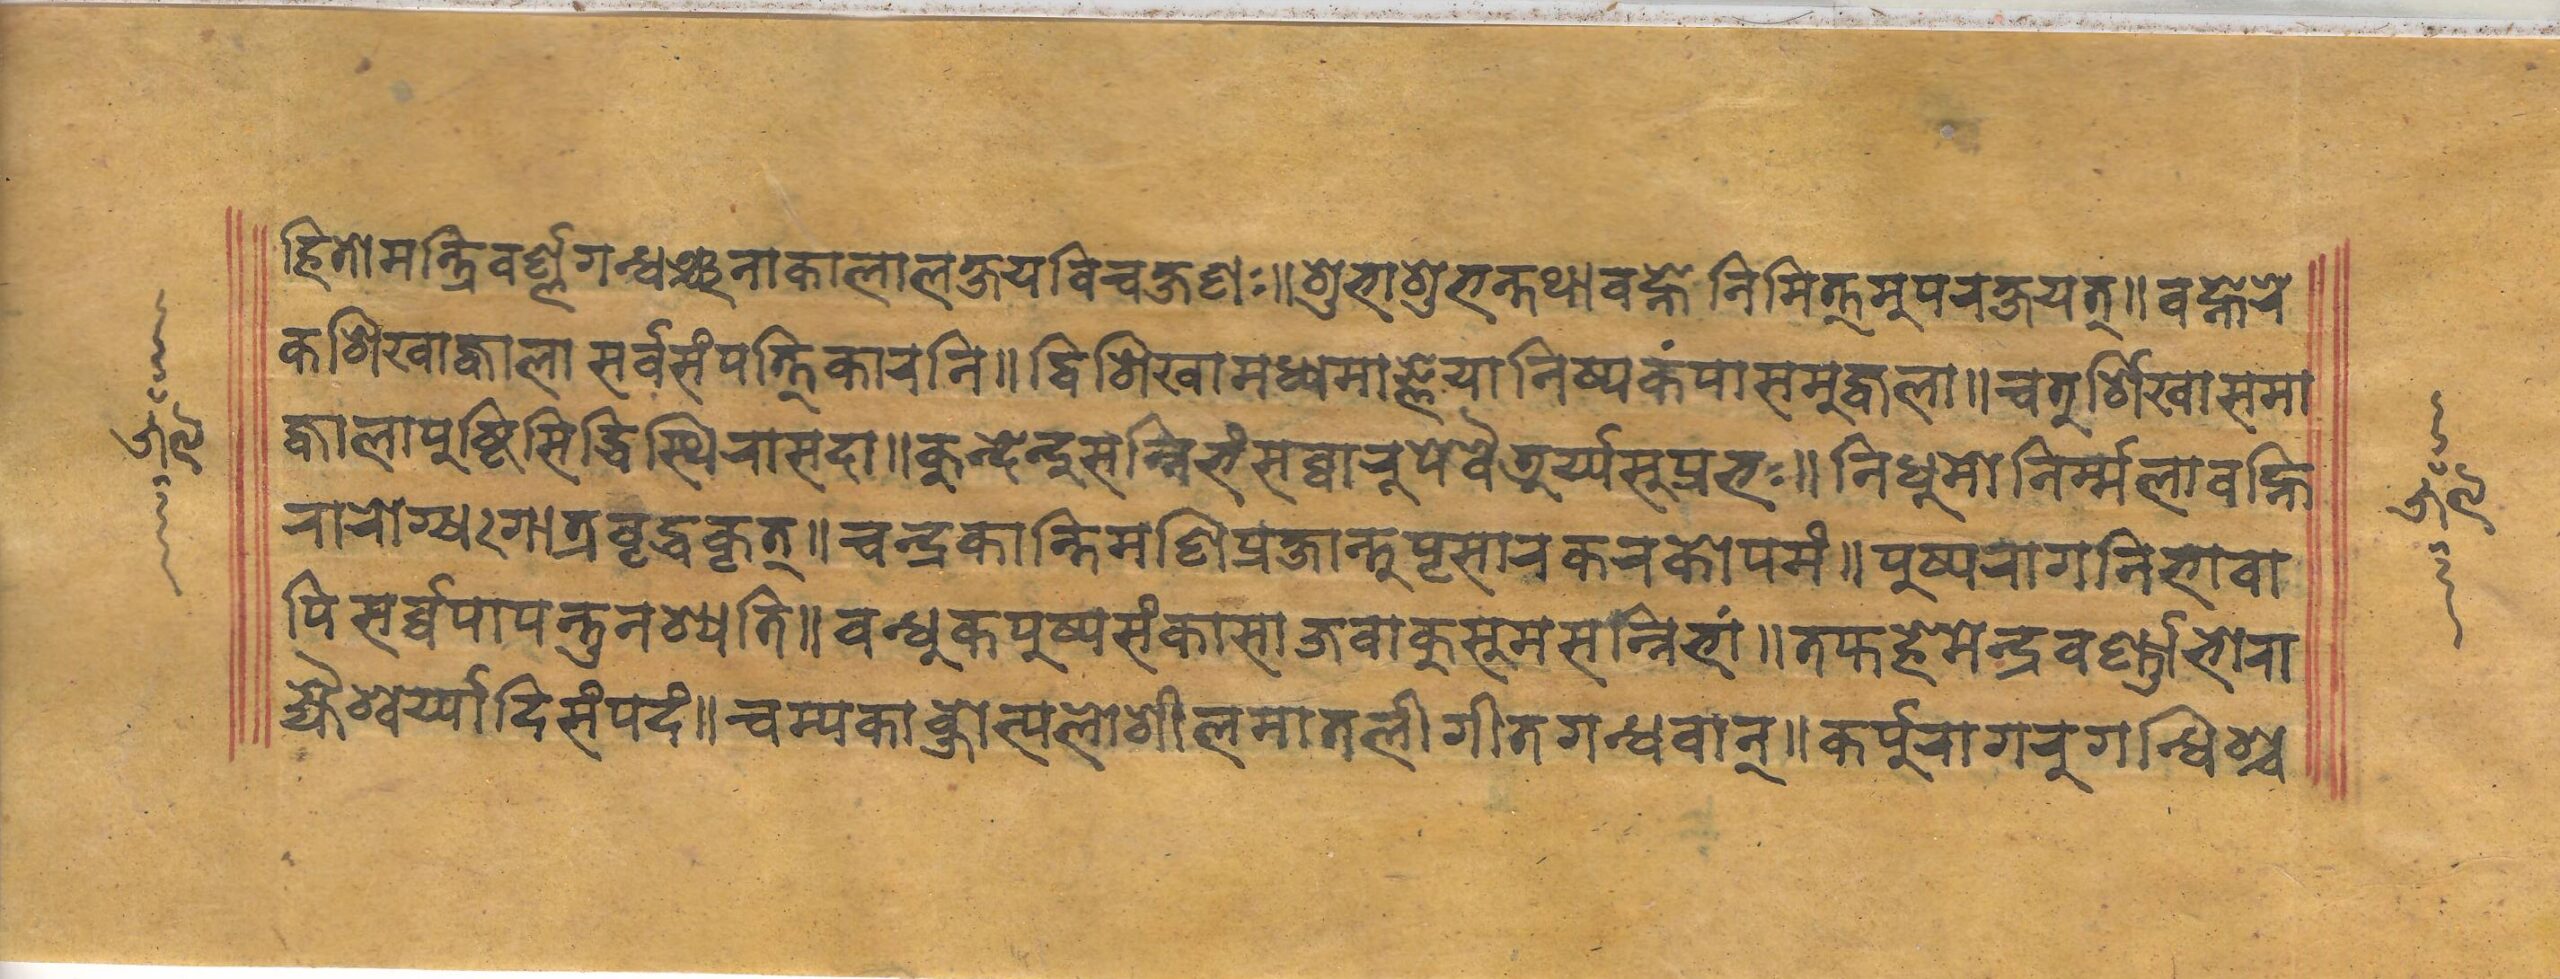 हितो मन्त्रि वर्ण्णगन्धञ्चनाकालालक्षयविचक्षणः॥ शुभाशुभन्तथा वह्ने निमित्तमुपरक्षयत्॥ वह्नेरे
कशिखाज्वाला सर्वसंपत्तिकारनि॥ द्विशिखामध्यमाज्ञेया निष्पकंपासमुज्वला॥ चतुर्शिखासमा
ज्वालापुष्टिसिद्धिस्थिरासदा॥ कुन्देन्दुसन्निभंसत्वारूपेवैतुर्य्यसुप्रभः॥ निधुमो निर्म्मलावह्नि
रारोग्यःगात्रवृद्धकृत्॥ चन्द्रकान्तिमणिप्रज्ञान्तुपृसारकरकोपमं॥ पुष्परागनिभावा
पि सर्व्वपापन्तुनश्यति॥ वन्धुकपुष्पसंकासाजवाकुसुमसन्निभां॥ तप्तहेमेन्द्रवर्ण्णाभोरा
ज्यैश्वर्य्यादिसंपदं॥ चम्पका क्षोत्पलोशीलमातलीगीतगन्धवान्॥ कर्पुरागरुगन्धिश्च